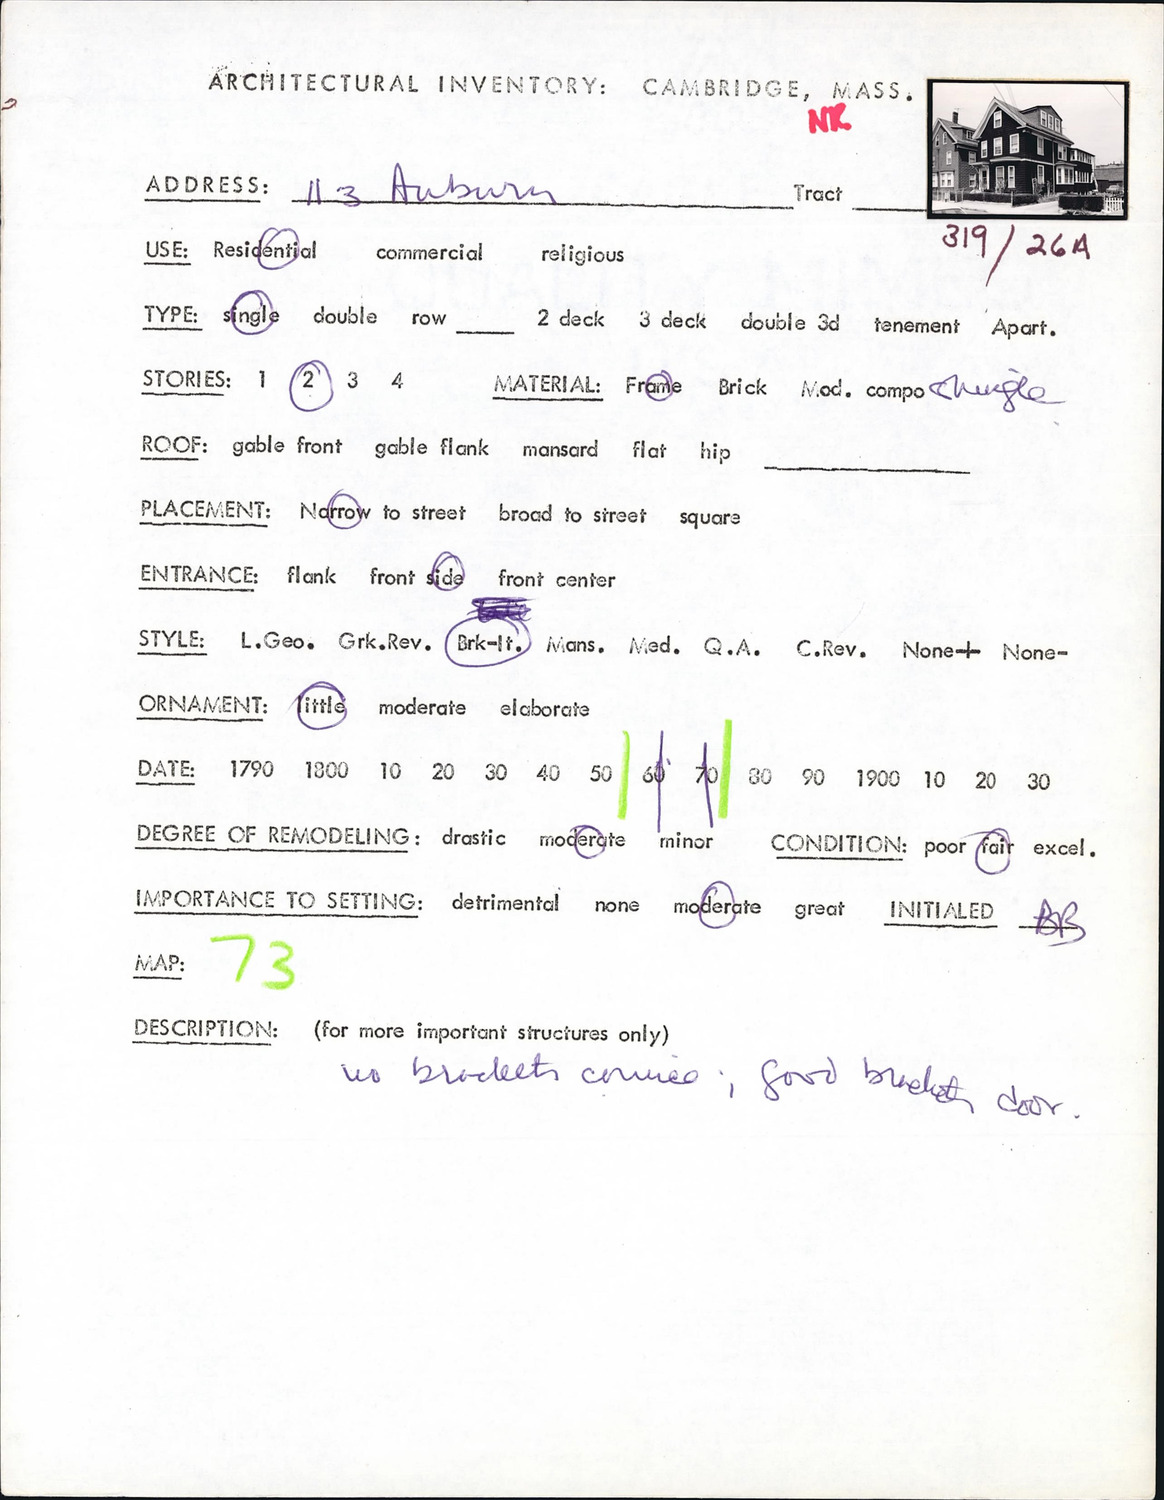 ARCHITECTURAL INVENTORY: CAMBRIDGE, MASS.
NR
ADDRESS: 113 Auburn Tract
319/26A
USE: Residential commercial religious
TYPE: single double row 2 deck 3 deck double 3d tenement Apart.
STORIES: 1 2 3 4 MATERIAL: Frame Brick Mod. compo shingle
ROOF: gable front gable flank mansard flat hip
PLACEMENT: Narrow to street broad to street square
ENTRANCE: flank front side front center
STYLE: L.Geo. Grk.Rev. Brk-It. Mans. Med. Q.A. C.Rev. None+ None-
ORNAMENT: little moderate elaborate
DATE: 1790 1800 10 20 30 40 50 60 70 80 90 1900 10 20 30
DEGREE OF REMODELING: drastic moderate minor CONDITION: poor fair excel.
IMPORTANCE TO SETTING: detrimental none moderate great INITIALED BB
MAP: 73
DESCRIPTION: (for more important structures only)
no brackets cornice; good brackets door.